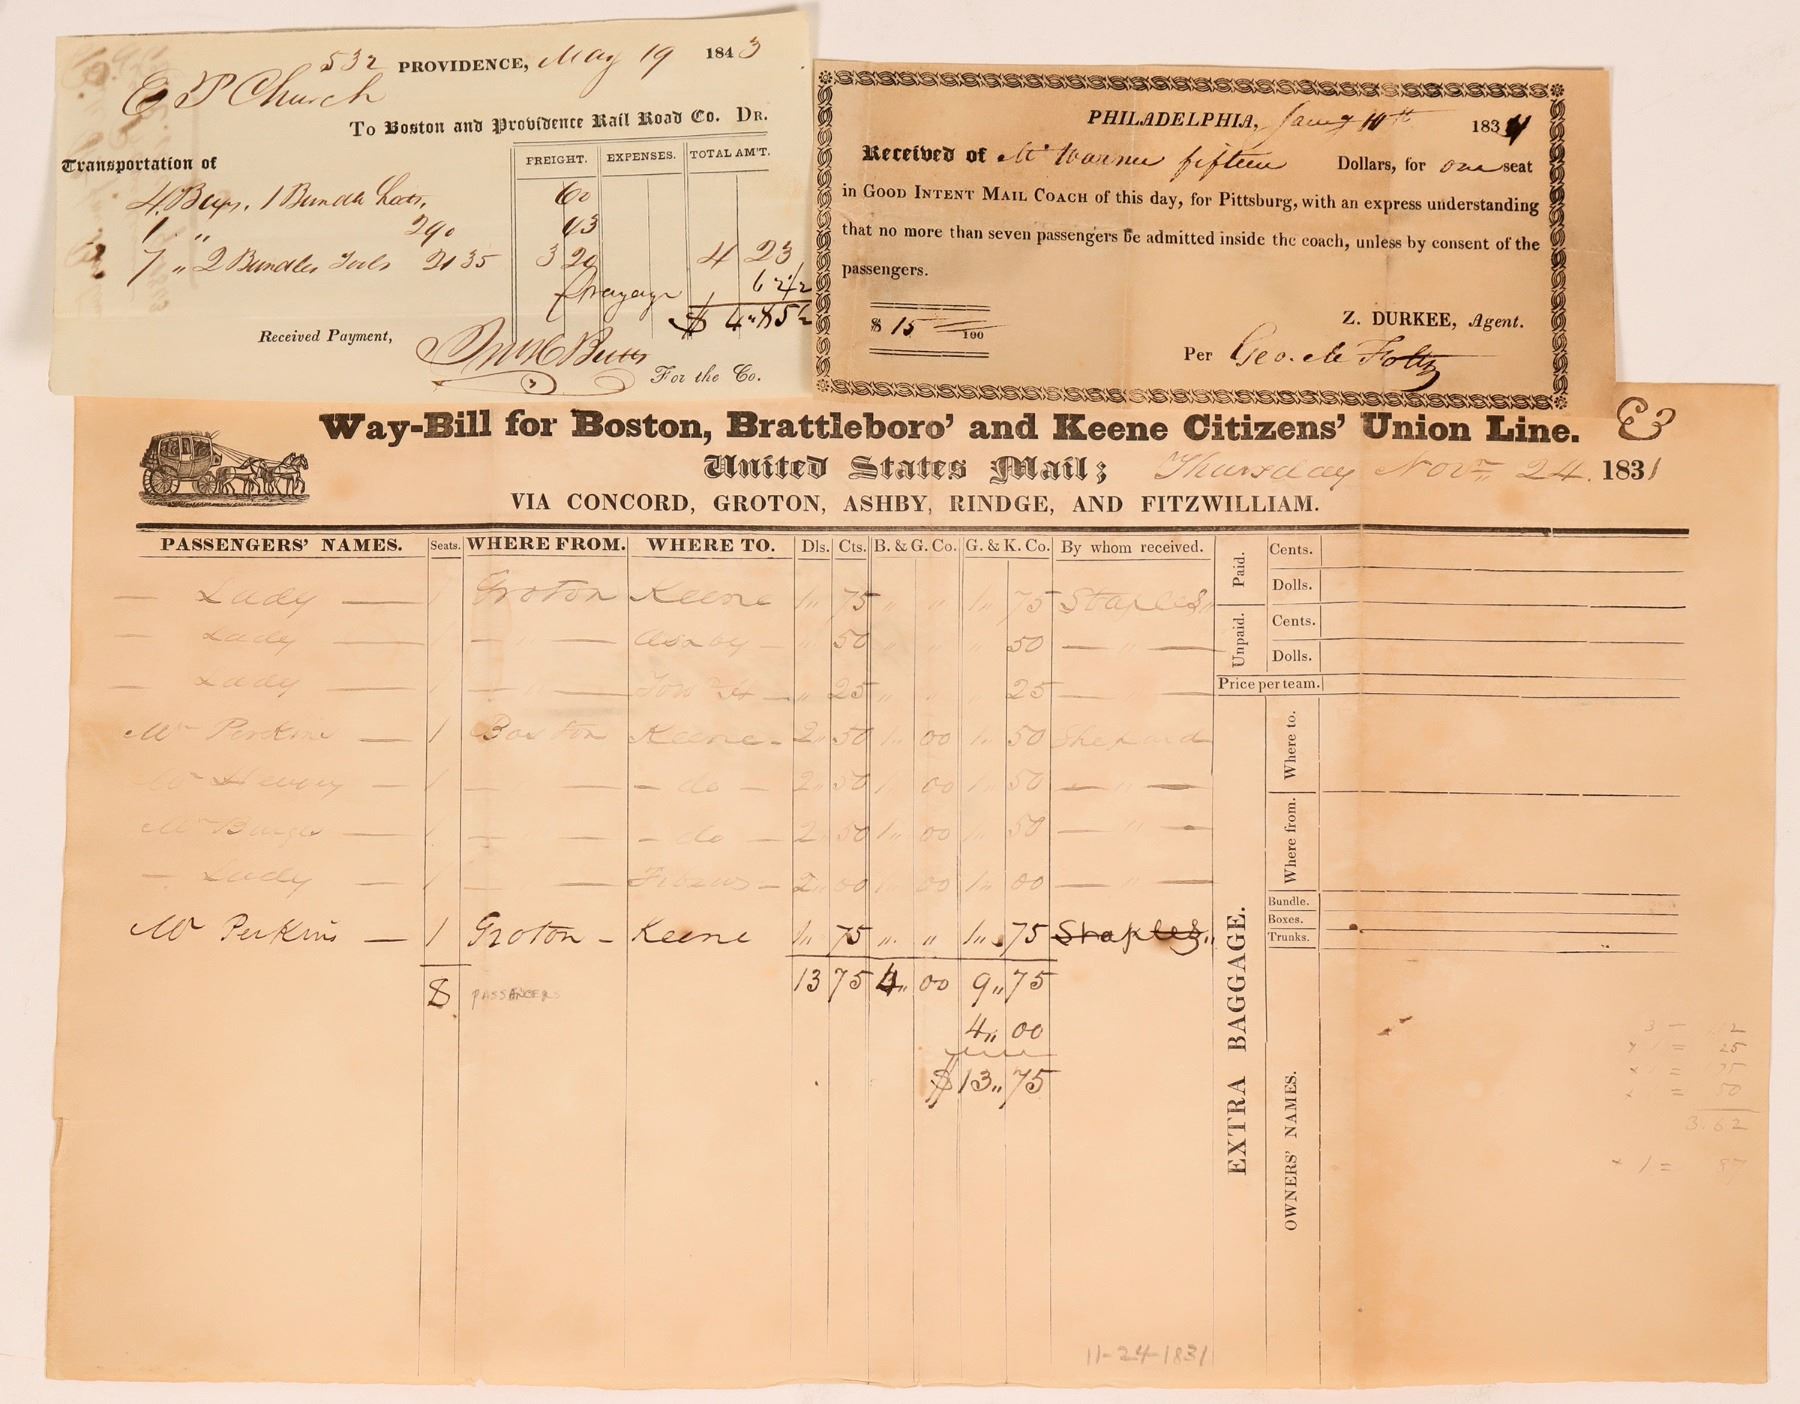 532 PROVIDENCE, May 19 1843
E P Church
To Boston and Providence Rail Road Co. DR.
Transportation of FREIGHT. EXPENSES. TOTAL AM'T.
4 1 Bundle 60
1 " 290 43
7 " 2 Bundles 2135 3 20 4 23
62 1/2
$ 4"85 1/2
Received Payment,
For the Co.
PHILADELPHIA, 10th 1834
Received of Mr Warner fifteen Dollars, for one seat
in GOOD INTENT MAIL COACH of this day, for Pittsburg, with an express understanding
that no more than seven passengers be admitted inside the coach, unless by consent of the
passengers.
Z. DURKEE, Agent.
$ 15 100
Per Geo.
Way-Bill for Boston, Brattleboro' and Keene Citizens' Union Line. E3
United States Mail; Thursday Novr 24. 1831
VIA CONCORD, GROTON, ASHBY, RINDGE, AND FITZWILLIAM.
PASSENGERS' NAMES. Seats. WHERE FROM. WHERE TO. Dls. Cts. B. & G. Co. G. & K. Co. By whom received.
— Lady — 1 Groton Keene 1" 75 " " 1" 75 Staples"
— Lady — 1 — " — Ashby — " 50 " " " 50 — " —
— Lady — 1 — " — — " 25 " " 25 — " —
Mr Perkins — 1 Boston Keene - 2" 50 1" 00 1" 50 Shepard
Mr — 1 — " — - do - 2" 50 1" 00 1" 50 — " —
Mr — 1 — " — - do - 2" 50 1" 00 1" 50 — " —
— Lady — 1 — " — 2" 00 1" 00 1" 00 — " —
Mr Perkins — 1 Groton - Keene 1" 75 " " 1" 75 Staples"
8 PASSENGERS 13 75 4" 00 9" 75
4" 00
$13" 75
Paid. Cents.
Dolls.
Unpaid. Cents.
Dolls.
Price per team.
EXTRA BAGGAGE.
Where to.
Where from.
Bundle.
Boxes.
Trunks.
OWNERS' NAMES.
3 - 12
1 = 25
1 = 175
= 50
3.62
× 1 = 87
11-24-1831